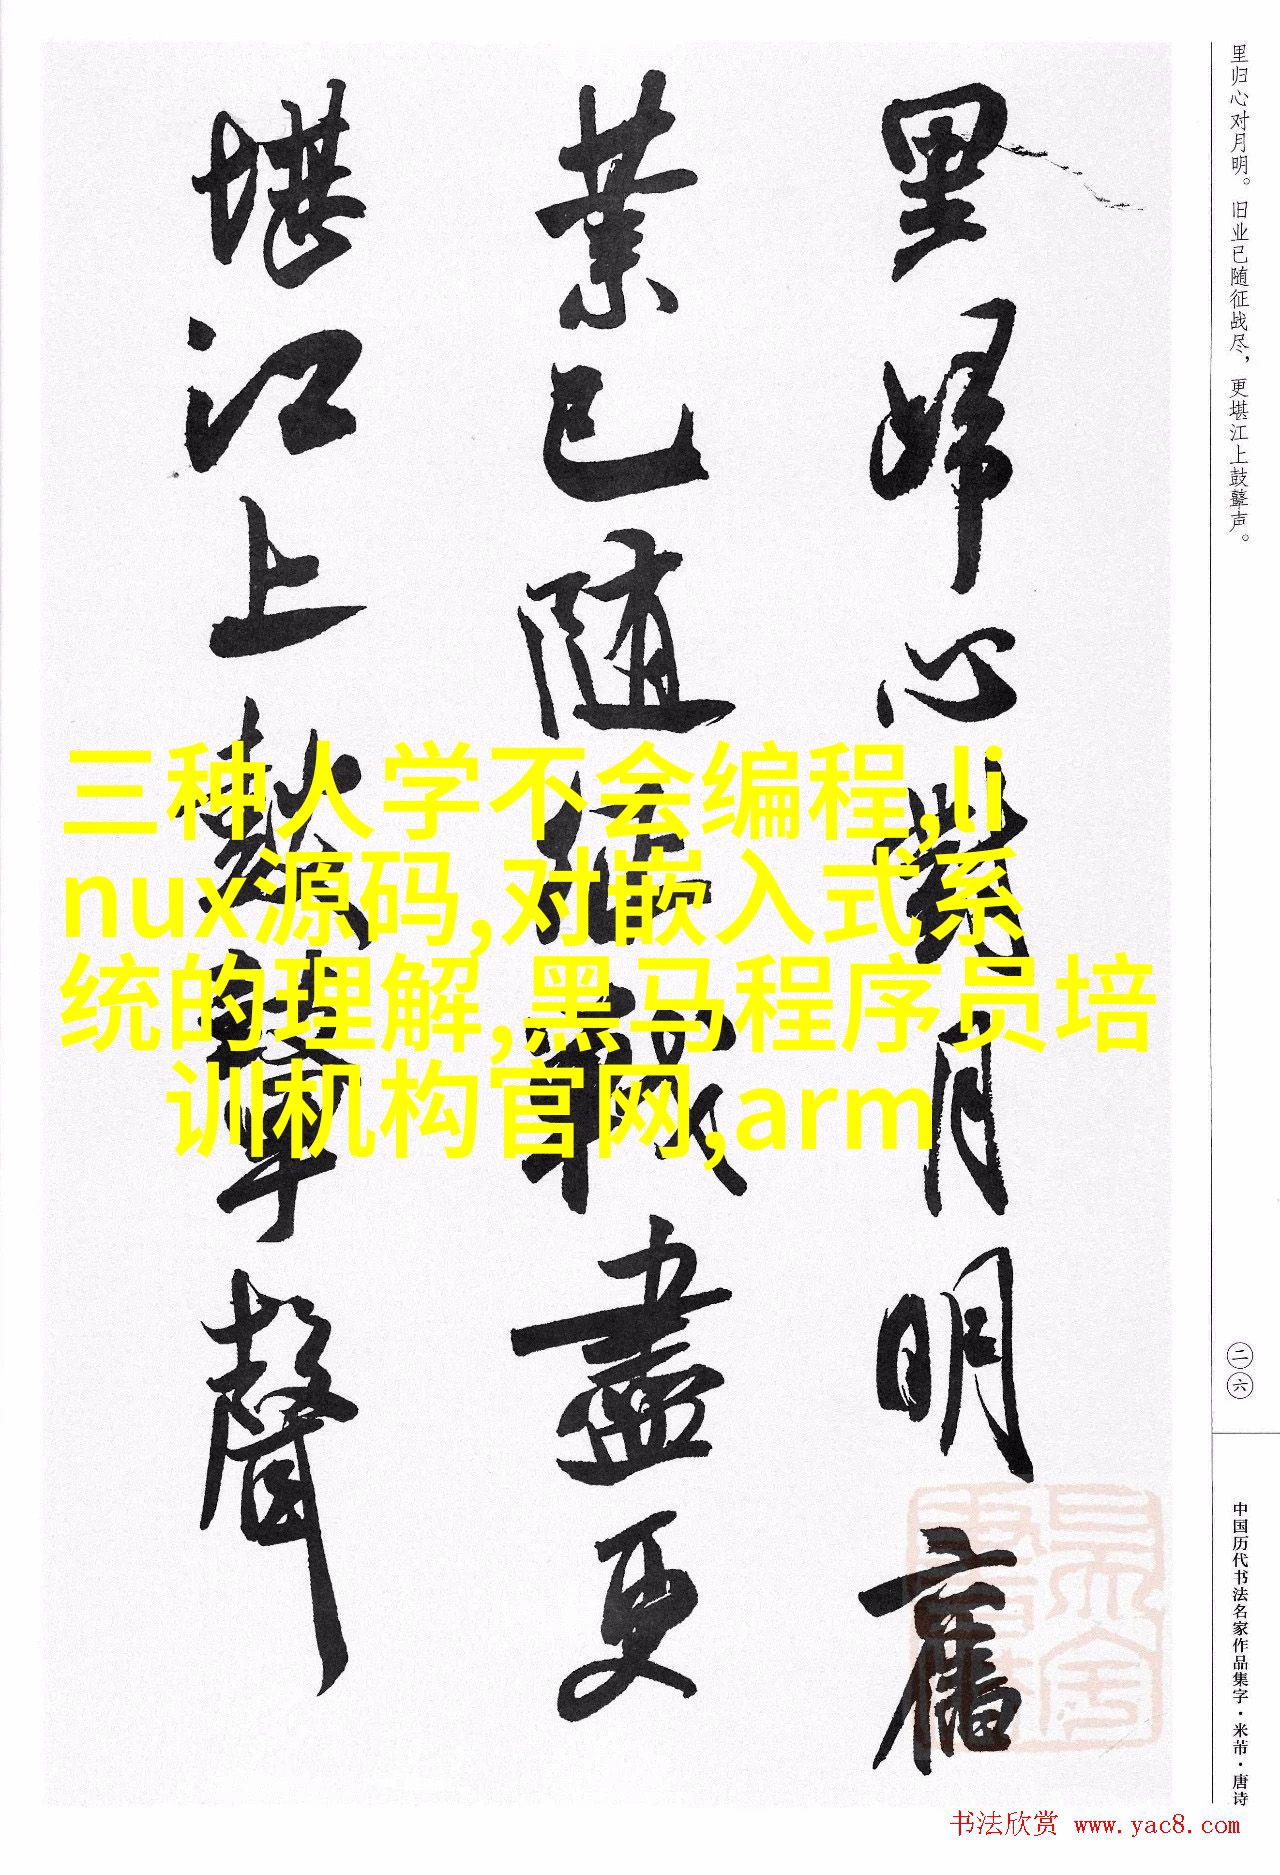 里归心对月明。旧业已随征战尽，更堪江上鼓鼙声。
里歸心對月明舊
業已隨征戰盡更
堪江上鼓鼙聲
三种人学不会编程,li
nux源码,对嵌入式系
统的理解,黑马程序员培
训机构官网,arm
二六
中国历代书法名家作品集字·米芾·唐诗
书法欣赏 www.yac8.com